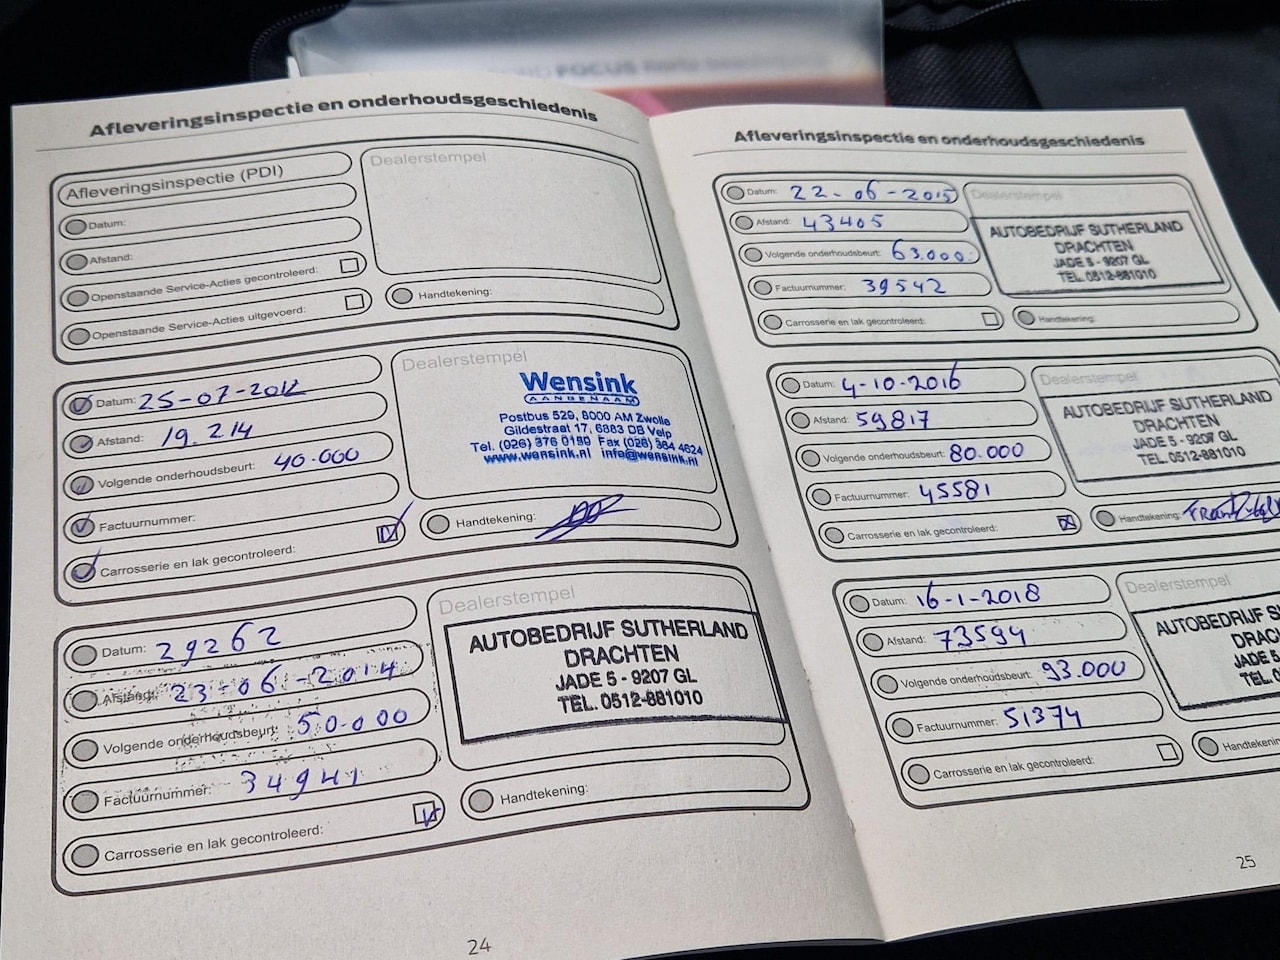 FOCUS
Afleveringsinspectie en onderhoudsgeschiedenis
Afleveringsinspectie (PDI)
Datum:
Afstand:
Openstaande Service-Acties gecontroleerd:
Openstaande Service-Acties uitgevoerd:
Dealerstempel
Handtekening:
Datum: 25-07-2012
Afstand: 19.214
Volgende onderhoudsbeurt: 40.000
Factuurnummer:
Carrosserie en lak gecontroleerd:
Dealerstempel
Wensink
AANGENAAM
Postbus 529, 8000 AM Zwolle
Gildestraat 17, 6883 DB Velp
Tel. (026) 376 0190 Fax (026) 364 4624
www.wensink.nl info@wensink.nl
Handtekening:
Datum: 29262
Afstand: 23-06-2014
Volgende onderhoudsbeurt: 50.000
Factuurnummer: 34941
Carrosserie en lak gecontroleerd:
Dealerstempel
AUTOBEDRIJF SUTHERLAND
DRACHTEN
JADE 5 - 9207 GL
TEL. 0512-881010
Handtekening:
24
Afleveringsinspectie en onderhoudsgeschiedenis
Datum: 22-06-2015
Afstand: 43405
Volgende onderhoudsbeurt: 63.000
Factuurnummer: 39542
Carrosserie en lak gecontroleerd:
Dealerstempel
AUTOBEDRIJF SUTHERLAND
DRACHTEN
JADE 5 - 9207 GL
TEL. 0512-881010
Handtekening:
Datum: 4-10-2016
Afstand: 59817
Volgende onderhoudsbeurt: 80.000
Factuurnummer: 45581
Carrosserie en lak gecontroleerd:
Dealerstempel
AUTOBEDRIJF SUTHERLAND
DRACHTEN
JADE 5 - 9207 GL
TEL. 0512-881010
Handtekening:
Datum: 16-1-2018
Afstand: 73594
Volgende onderhoudsbeurt: 93.000
Factuurnummer: 51374
Carrosserie en lak gecontroleerd:
Dealerstempel
AUTOBEDRIJF S
DRAC
JADE 5
TEL. 0
Handtekening:
25